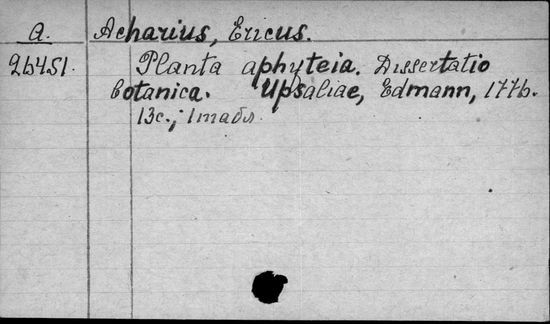 A. Acharius, Ericus.
26451. Planta aphyteia. Dissertatio
botanica. Upsaliae, Edmann, 1776.
13с.; 1 табл.